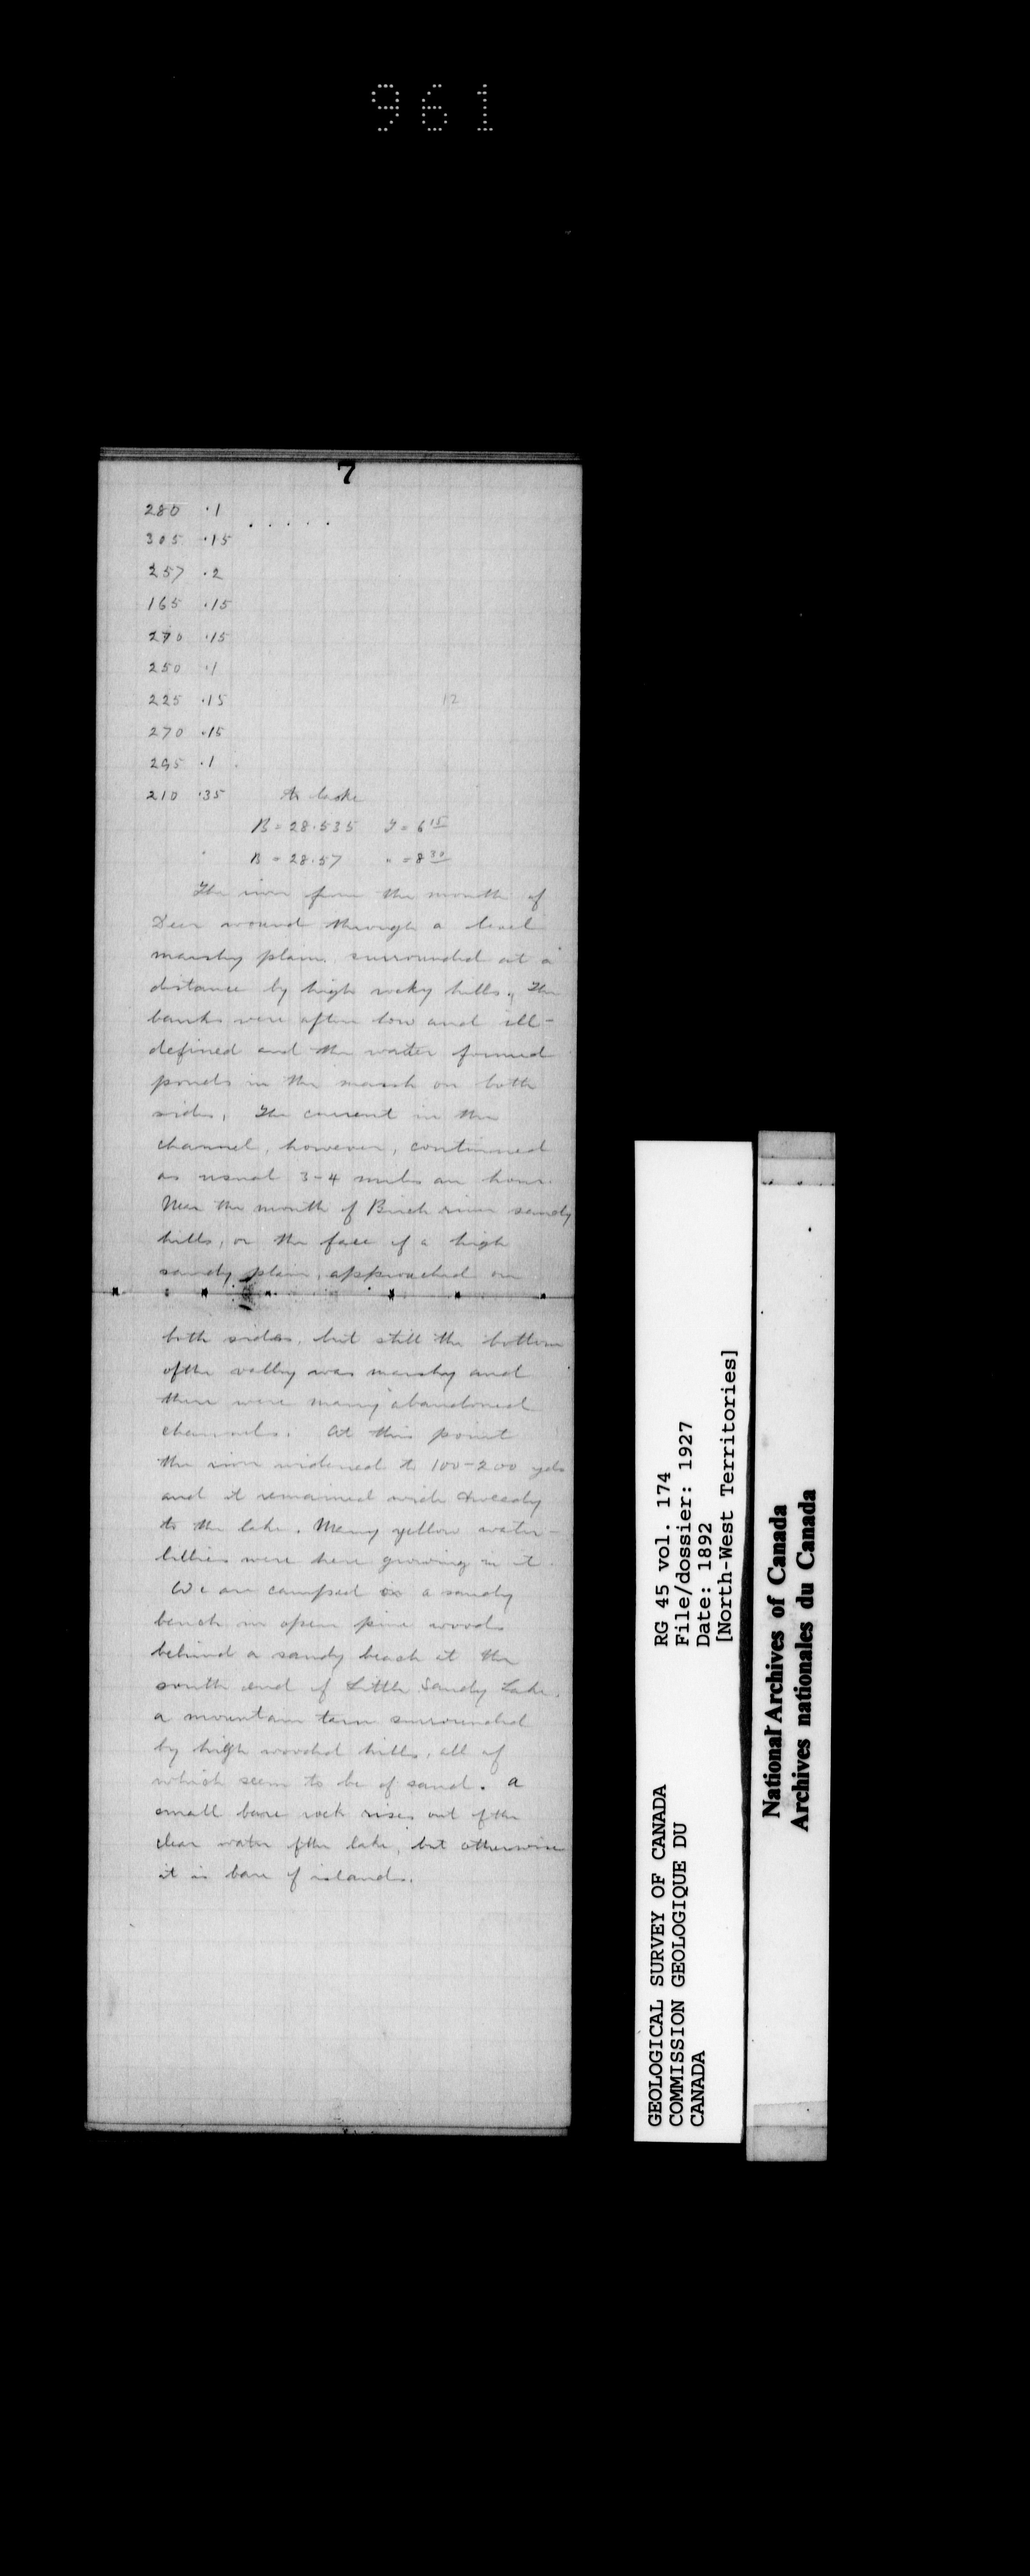 961
7
280 .1
305 .15
257 .2
165 .15
270 .15
250 .1
225 .15
12
270 .15
295 .1
210 .35 to lake
B = 28.535 T = 6 15
B = 28.57 " = 8 30
The river from the mouth of
Deer wound through a level
marshy plain, surrounded at a
distance by high rocky hills. The
banks were often low and ill-
defined and the water formed
ponds in the marsh on both
sides. The current in the
channel, however, continued
as usual 3-4 miles an hour.
Near the mouth of Birch river sandy
hills, or the face of a high
sandy plain, approached on
both sides, but still the bottom
of the valley was marshy and
there were many abandoned
channels. At this point
the river widened to 100-200 yds
and it remained wide &weedy
to the lake. Many yellow water-
lillies were here growing in it.
We are camped on a sandy
bench in open pine woods
behind a sandy beach at the
south end of Little Sandy Lake,
a mountain tarn surrounded
by high wooded hills, all of
which seem to be of sand. A
small bare rock rises out of the
clear water of the lake, but otherwise
it is bare of islands.
GEOLOGICAL SURVEY OF CANADA
COMMISSION GEOLOGIQUE DU
CANADA
RG 45 vol. 174
File/dossier: 1927
Date: 1892
[North-West Territories]
National Archives of Canada
Archives nationales du Canada